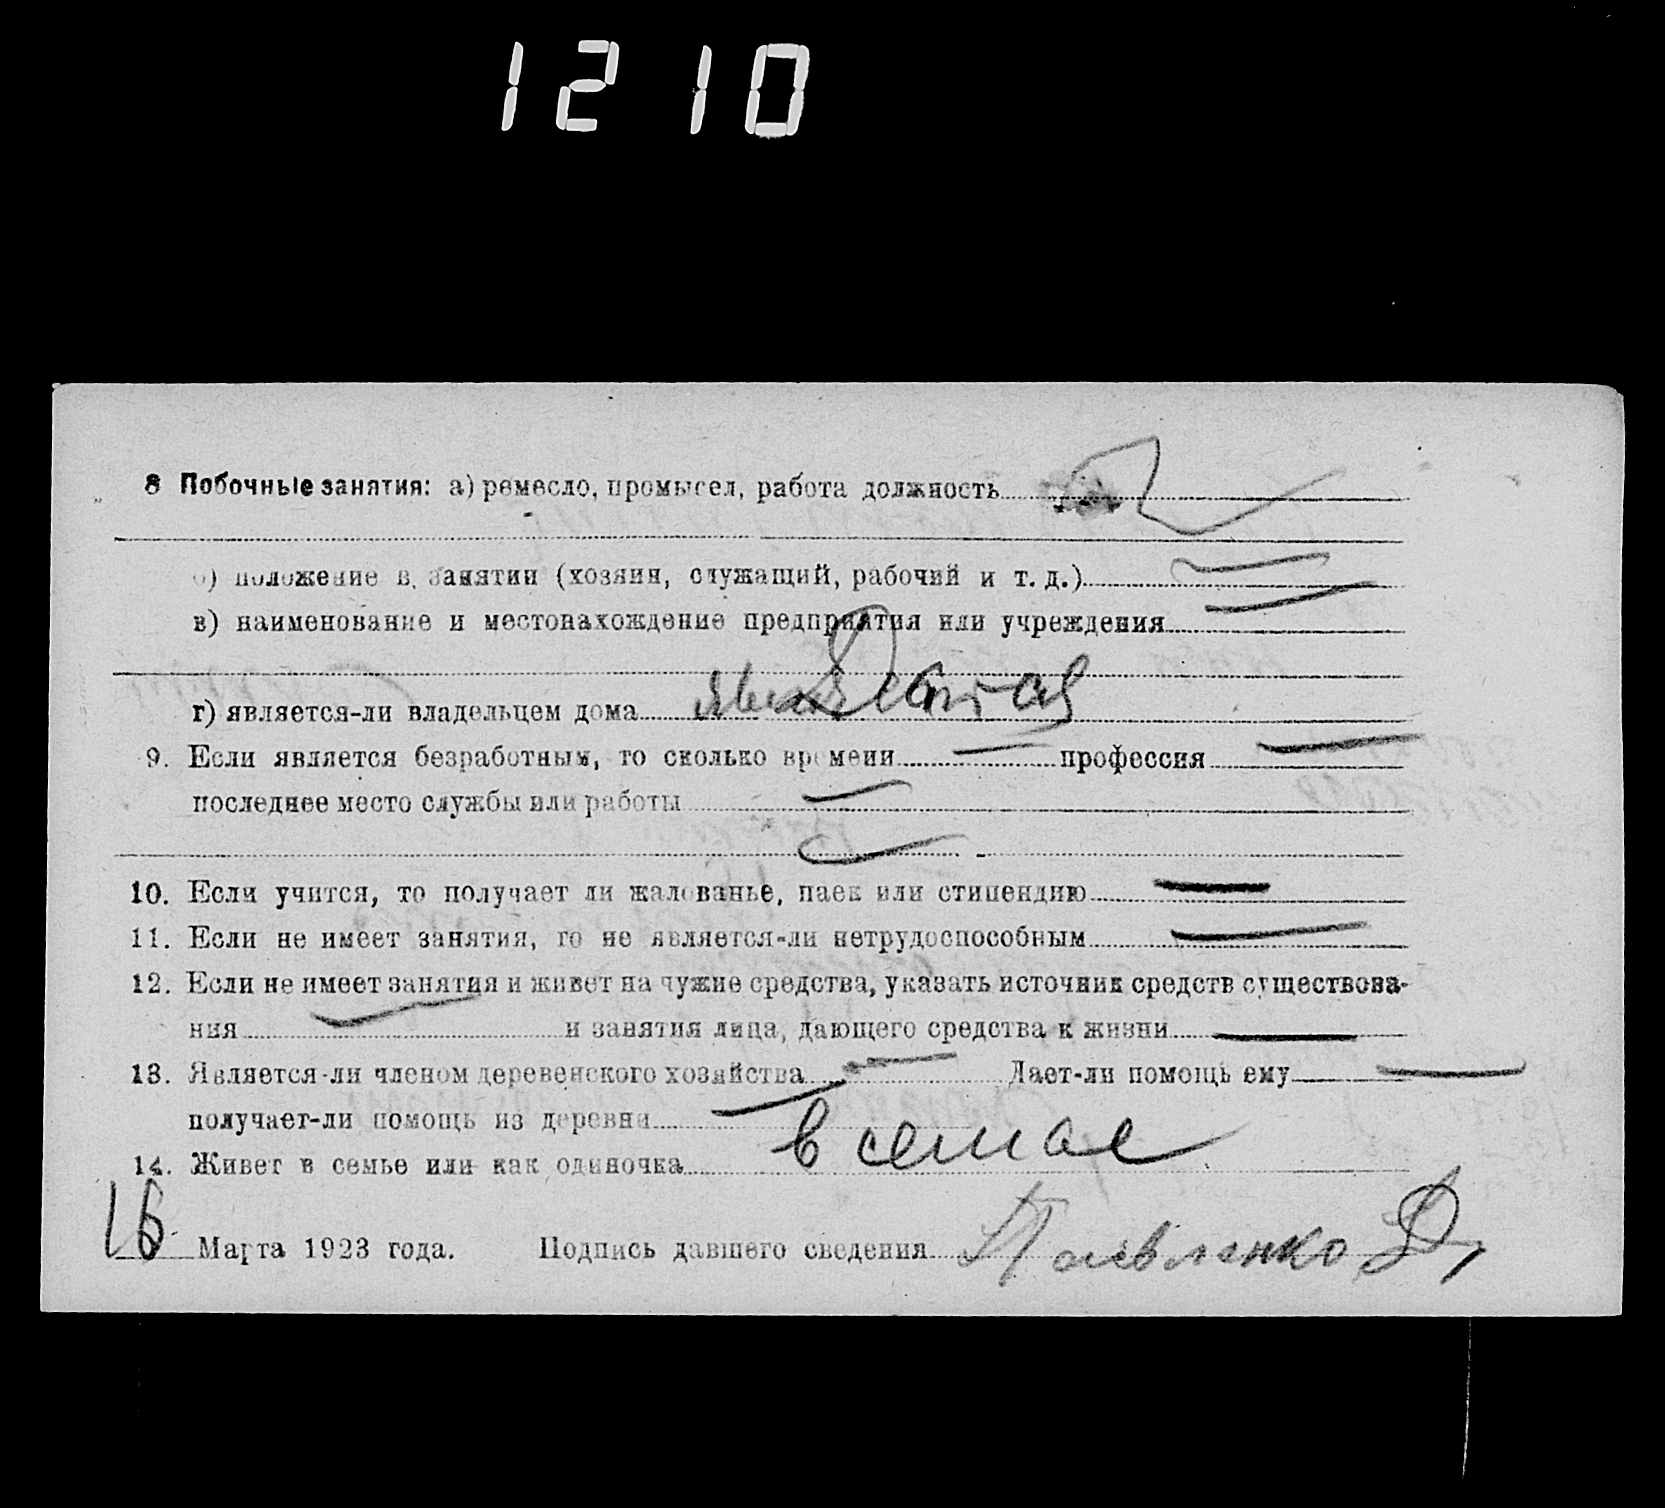 1210
8 Побочные занятия: а) ремесло, промысел, работа должность
б) положение в занятии (хозяин, служащий, рабочий и т. д.)
в) наименование и местонахождение предприятия или учреждения
г) является-ли владельцем дома
9. Если является безработным, то сколько времени — профессия —
последнее место службы или работы —
10. Если учится, то получает ли жалованье, паек или стипендию —
11. Если не имеет занятия, то не является-ли нетрудоспособным —
12. Если не имеет занятия и живет на чужие средства, указать источник средств существова-
ния — и занятия лица, дающего средства к жизни —
13. Является-ли членом деревенского хозяйства — Дает-ли помощь ему —
получает-ли помощь из деревни —
14. Живет в семье или как одиночка в семье
16 Марта 1923 года. Подпись давшего сведения Павленко Д,